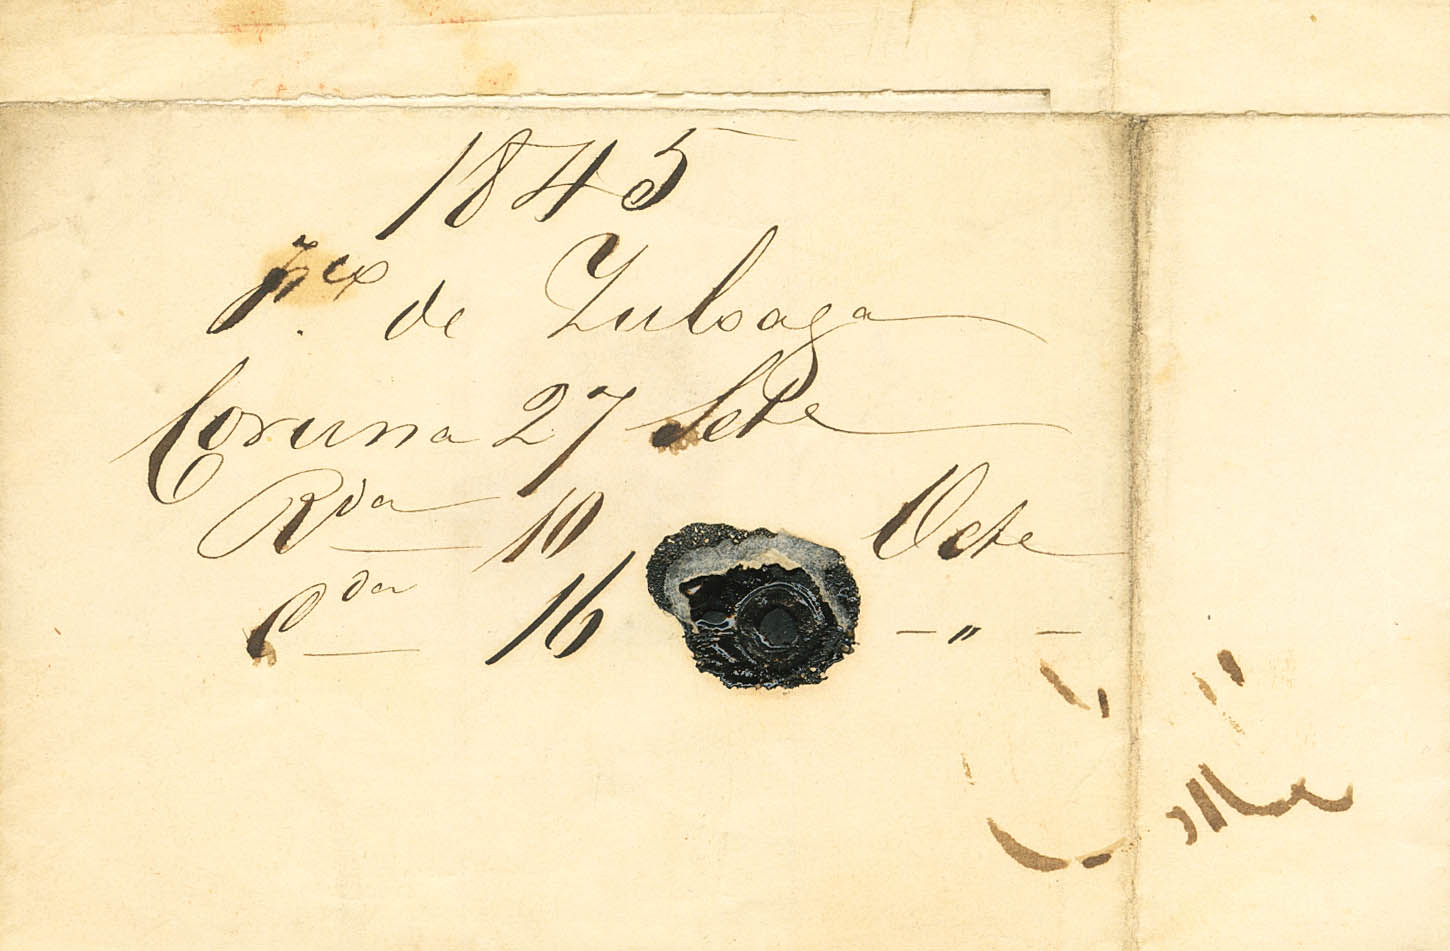 1845
de Zulsaga
Coruna 27 Sete
Rda 10 Octe
Cda 16 — " —